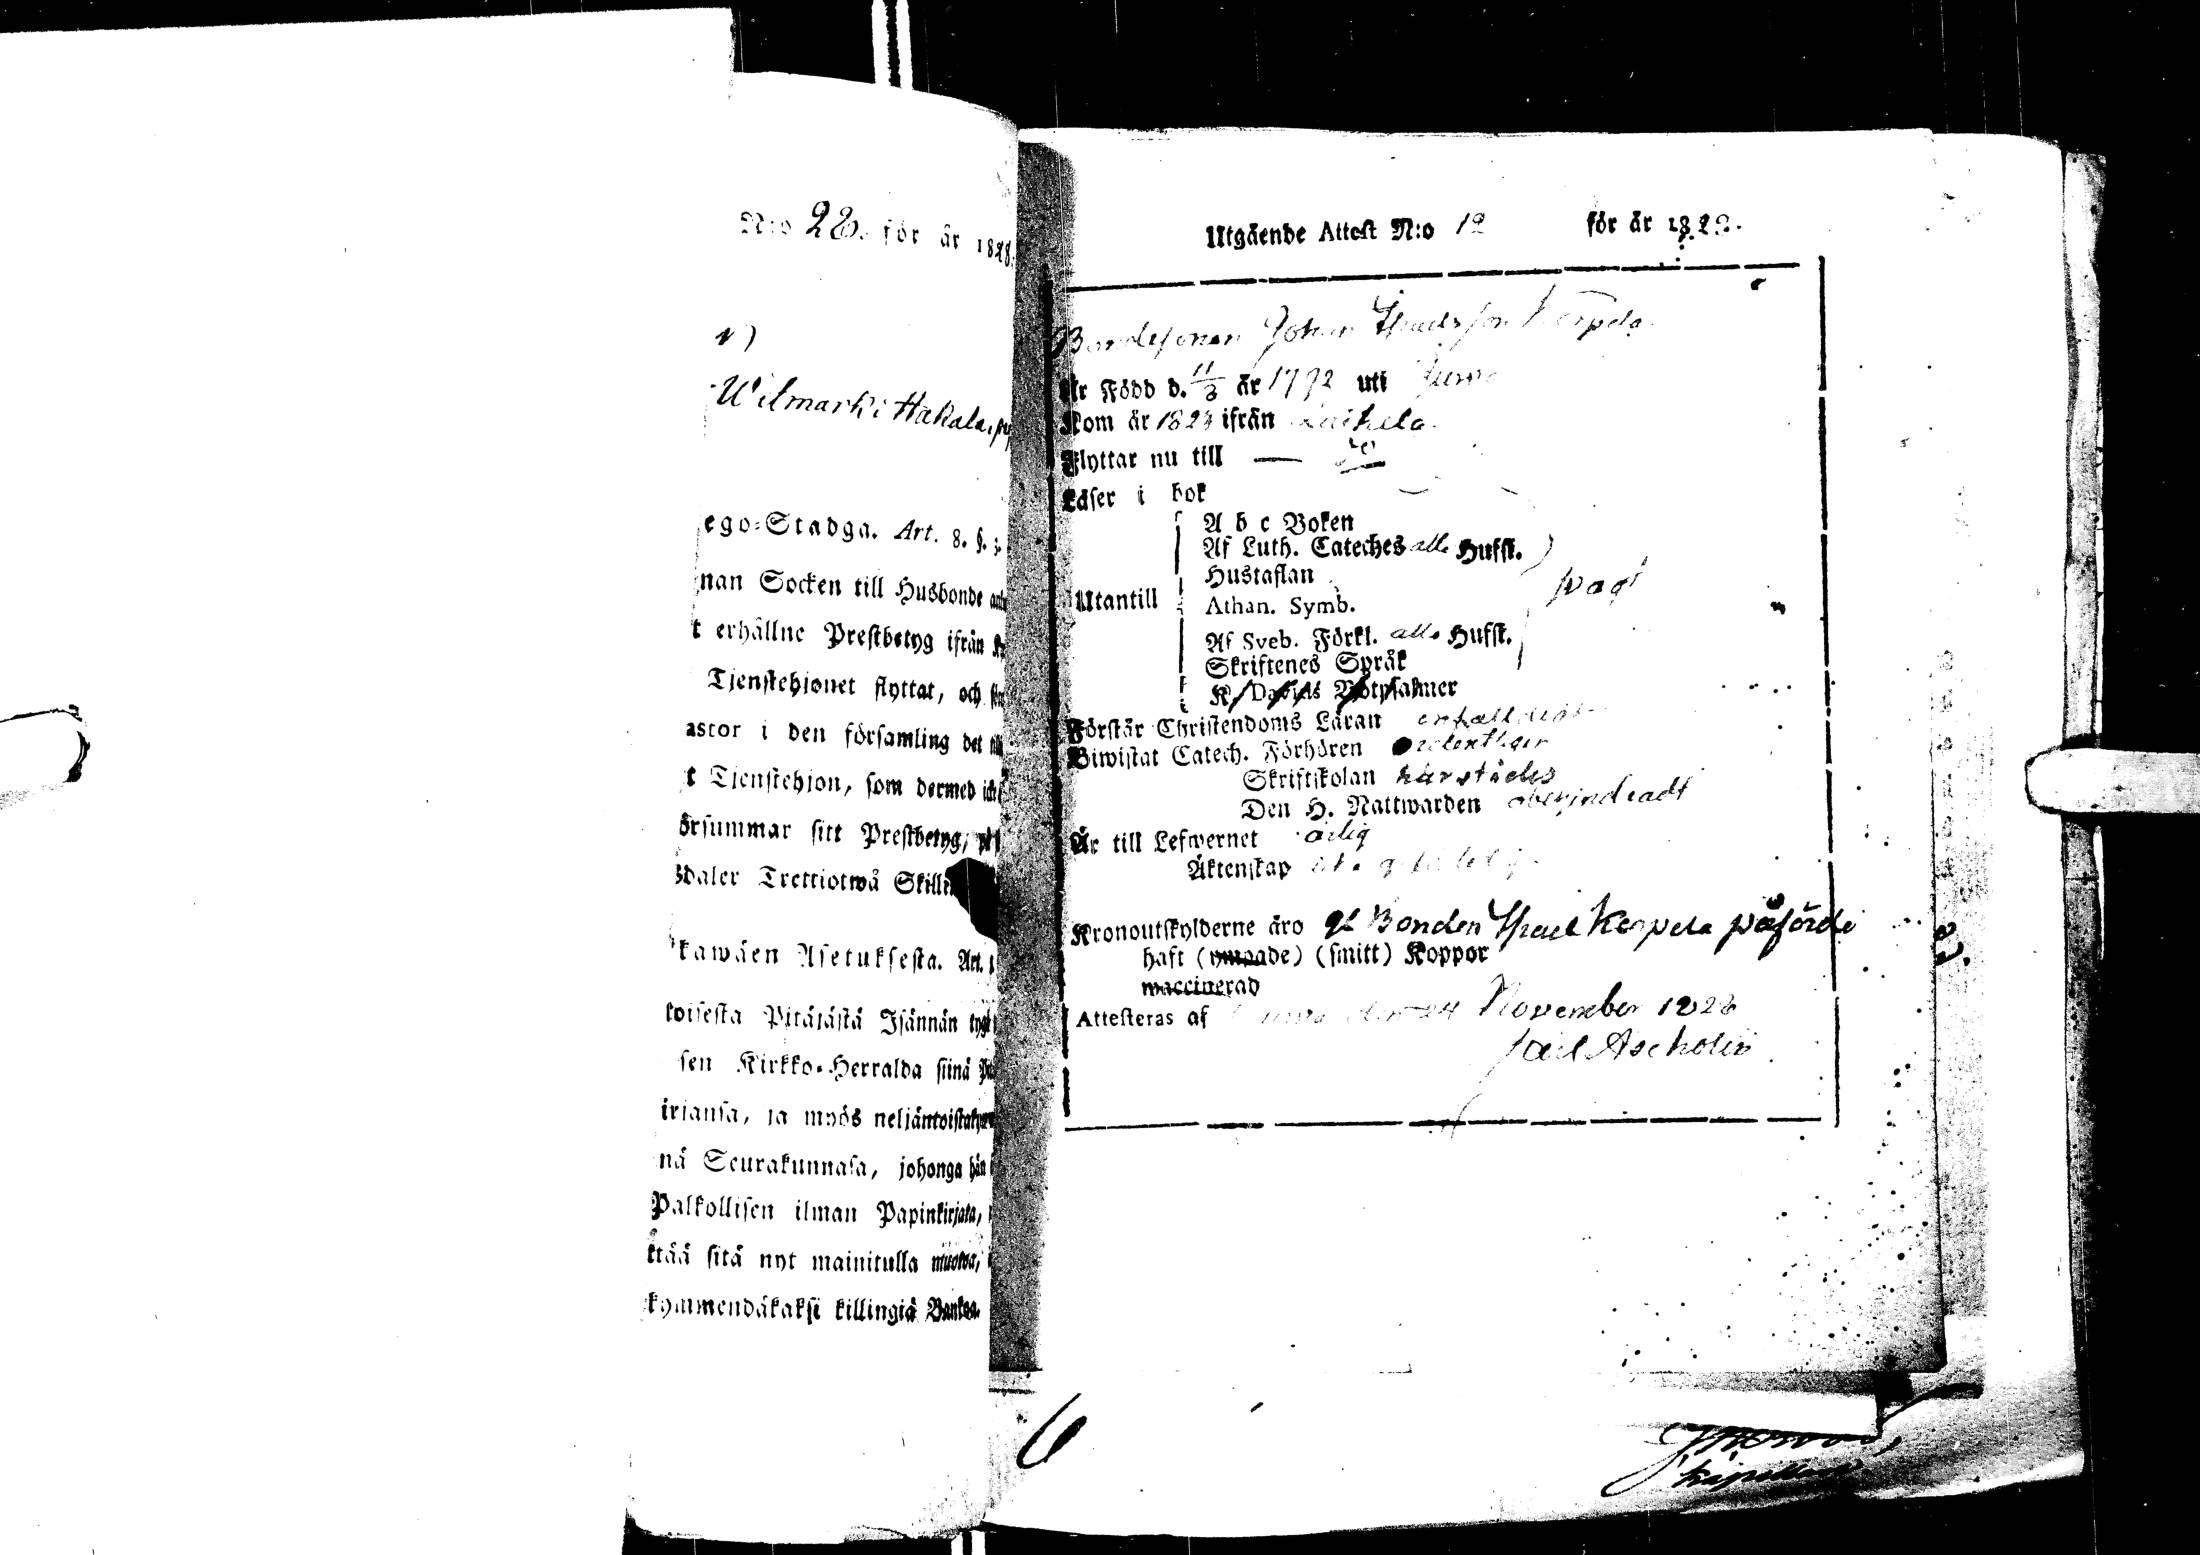 N:o 28. för år 1828.
Wilmarki Hakala,
ego-Stadga. Art. 8. §. 3.
nan Socken till Husbonde
t erhållne Prestbetyg ifrån
Tjenstehjonet flyttat, och
astor i den församling det
t Tjenstehjon, som dermed icke
örsummar sitt Prestbetyg,
sdaler Trettiotwå Skilli
kawäen Asetuksesta. Art.
toisesta Pitäjästä Isännän
sen Kirkko-Herralda siinä
irjansa, ja myös neljäntoista
nä Seurakunnasa, johonga hän
Palkollisen ilman Papinkirjata,
ttää sitä nyt mainitulla muotoa,
kymmendäkaksi killingiä Banko.
Utgående Attest N:o 12 för år 1828.
Bondesonen Johan Israelsson Kerpela
Är Född d. 11/3 år 1792 uti
Kom år 1823 ifrån Laihela
Flyttar nu till —
Läser i bok
A b c Boken
Af Luth. Cateches alla Hufst.
Hustaflan
Utantill
Athan. Symb.
Af Sveb. Förkl. alla Hufst.
Skriftenes Språk
K. Davids Botpsalmer
Förstår Christendoms Läran enfalldigt
Biwistat Catech. Förhören ordentligen
Skriftskolan härstädes
Den H. Nattwarden obehindradt
Är till Lefwernet ärlig
Äktenskap
Kronoutskylderne äro Bonden Israel Kerpela påförde
haft (ympade) (smitt) Koppor
waccinerad
Attesteras af den 24 November 1828
6